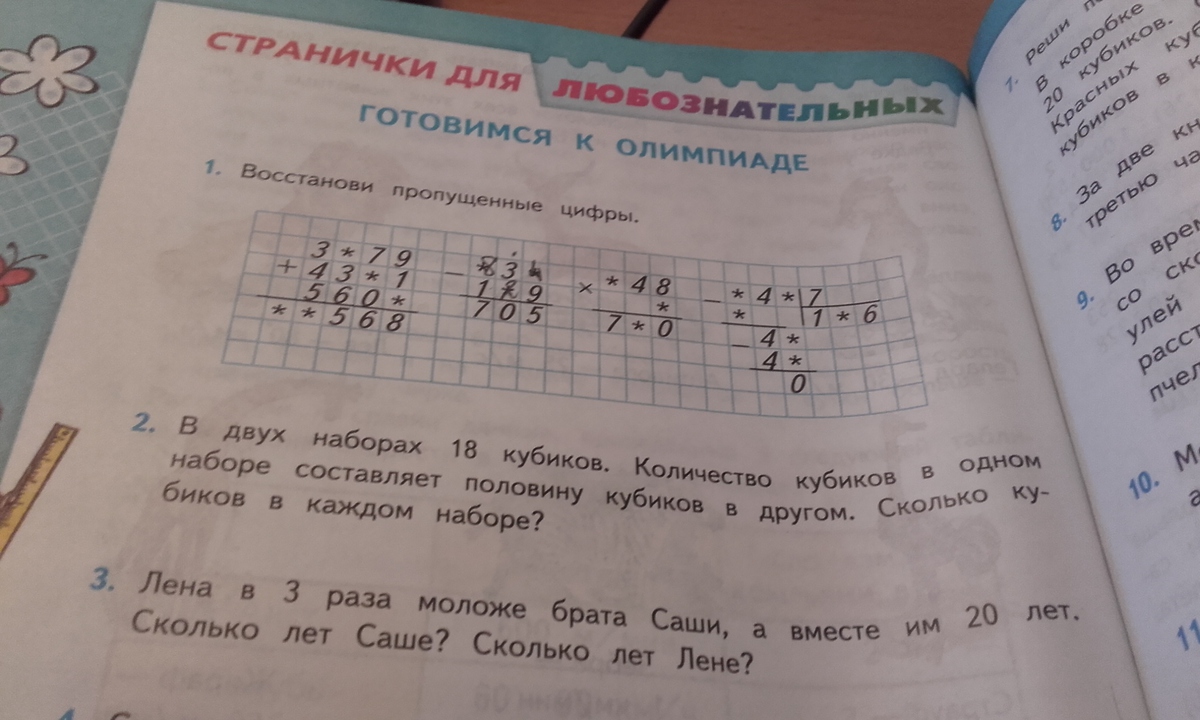 СТРАНИЧКИ ДЛЯ ЛЮБОЗНАТЕЛЬНЫХ
ГОТОВИМСЯ К ОЛИМПИАДЕ
1. Восстанови пропущенные цифры.
3*79
+ 43*1
560*
**568
− *3
1*9
705
× *48
*
7*0
− *4* 7
* 1*6
− 4*
4*
0
2. В двух наборах 18 кубиков. Количество кубиков в одном
наборе составляет половину кубиков в другом. Сколько ку-
биков в каждом наборе?
3. Лена в 3 раза моложе брата Саши, а вместе им 20 лет.
Сколько лет Саше? Сколько лет Лене?
7. Реши
В коробке
20 кубиков.
Красных
кубиков в
8. За две
третью
9. Во
со
улей
10.
11